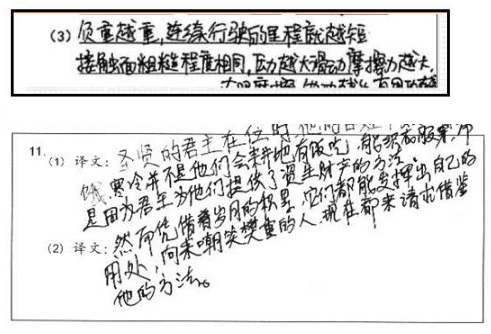 (3) 负重越重,连续行驶的里程就越短
接触面粗糙程度相同,压力越大滑动摩擦力越大,
11.
(1) 译文: 圣贤的君主在位时
饿寒冷并不是他们会耕地有饭吃,能织衣服穿,
是因为君主为他们提供了资生财产的方法。
(2) 译文: 然而凭借着岁月的积累,它们都能发挥出自己的
用处,向来嘲笑樊重的人,现在都来请求借鉴
他的方法。